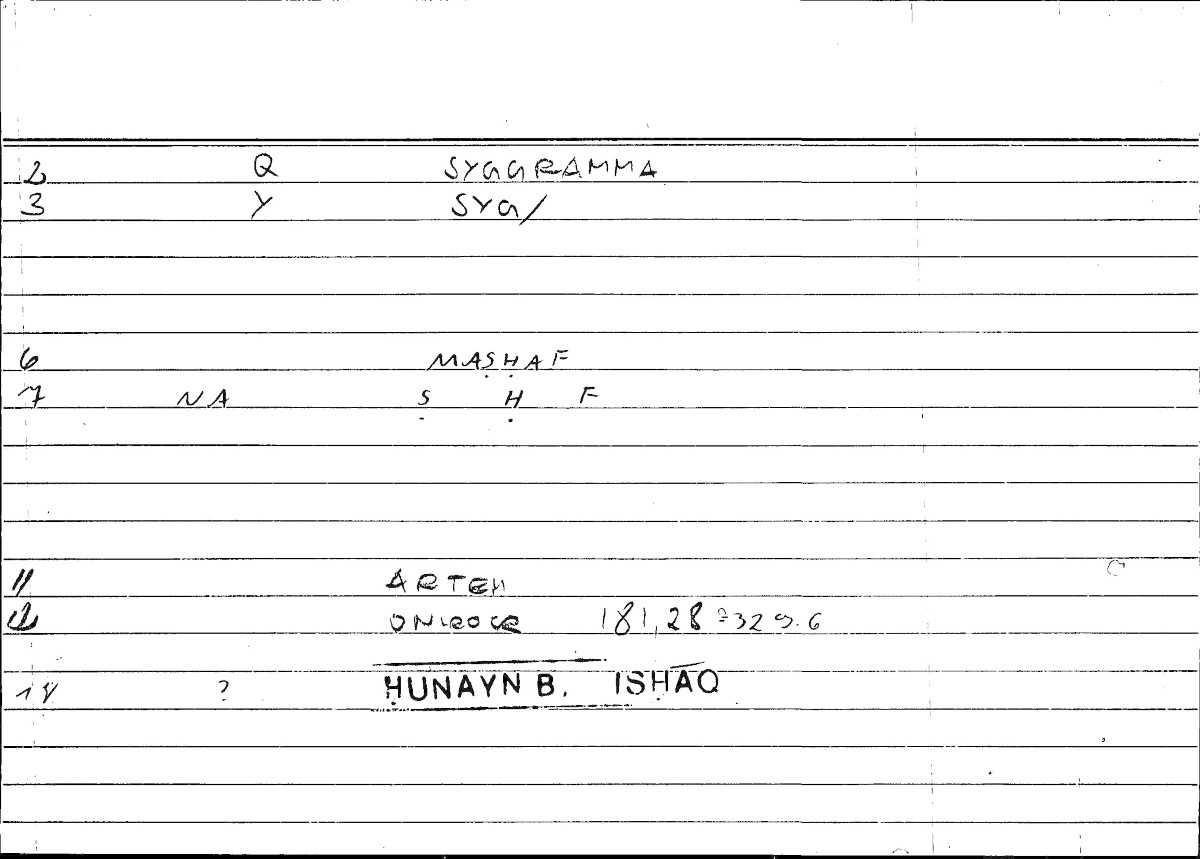 2 Q SYGGRAMMA
3 Y SYG/
6 MAṢḤAF
7 NA Ṣ Ḥ F
11 ARTEM
12 ONIROCR 181,28 = 329.6
18 ? ḤUNAYN B. ISḤĀQ